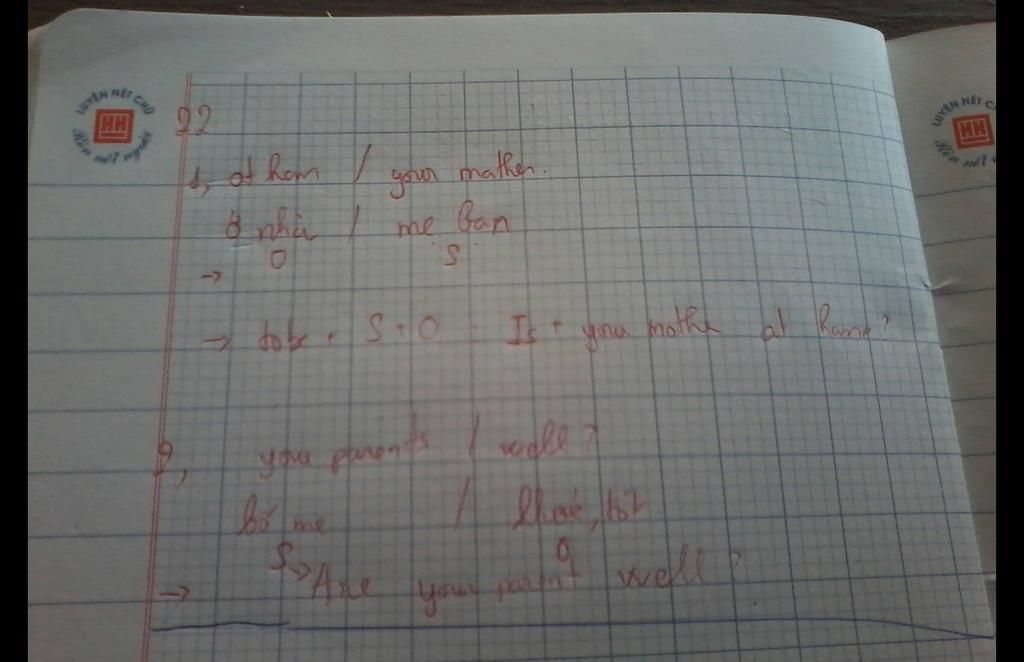 LUYỆN NÉT CHỮ
HH
Rèn nết người
LUYỆN NÉT C
HH
22
1, at hom / your mother.
ở nhà / mẹ bạn
O S
→
→ tobe + S + O : Is + you mother at home?
2, your parents / well?
bố mẹ / khoẻ, tốt
S O
→ → Are your parent well?